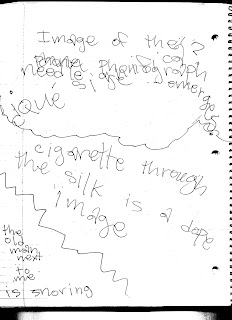 Image of the
Phonograph
needle side emerges
iqué
cigarette through
the silk is a dope
image
the
old
man
next
to
me
is snoring